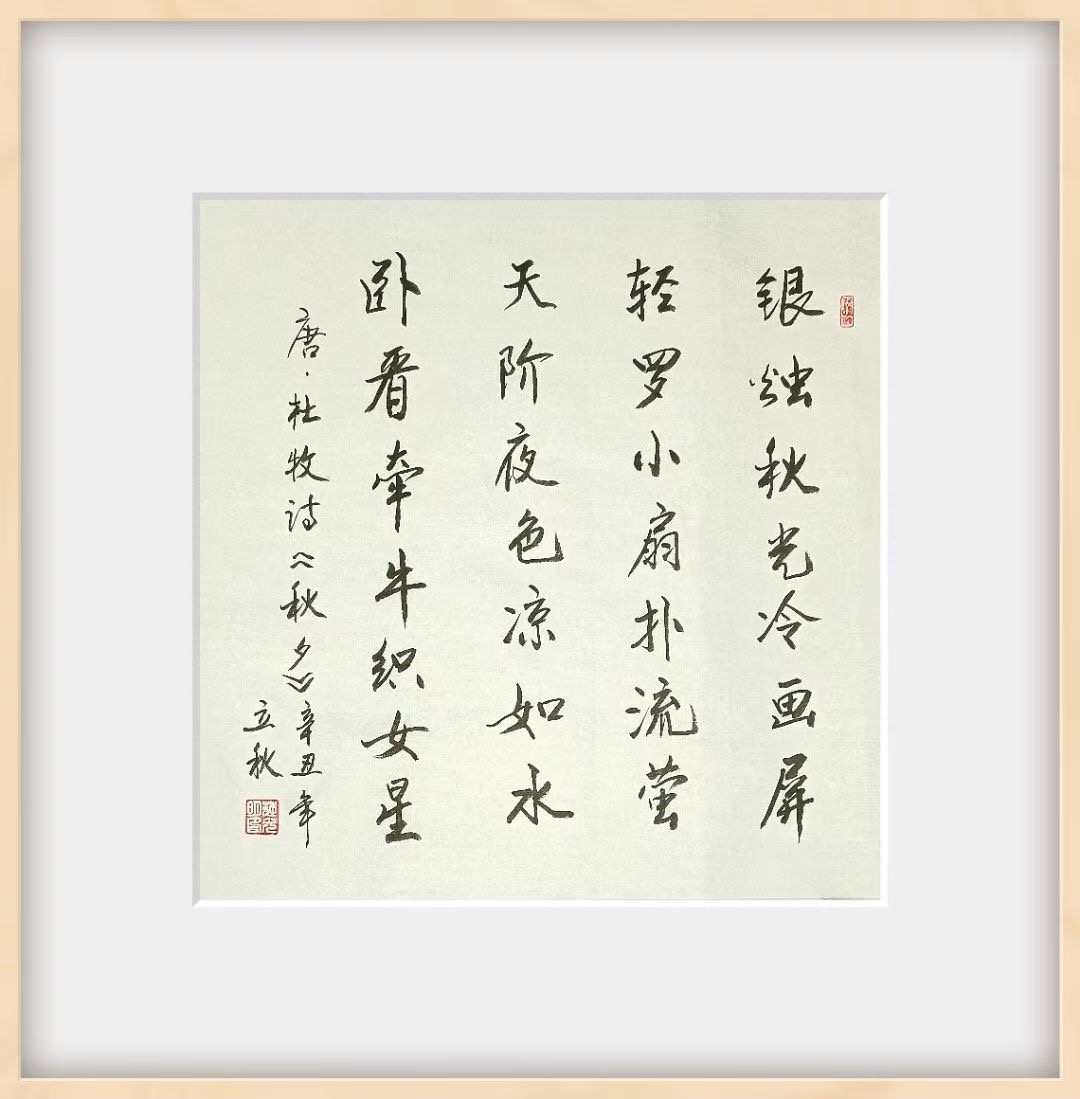 银烛秋光冷画屏
轻罗小扇扑流萤
天阶夜色凉如水
卧看牵牛织女星
唐·杜牧诗《秋夕》辛丑年
立秋